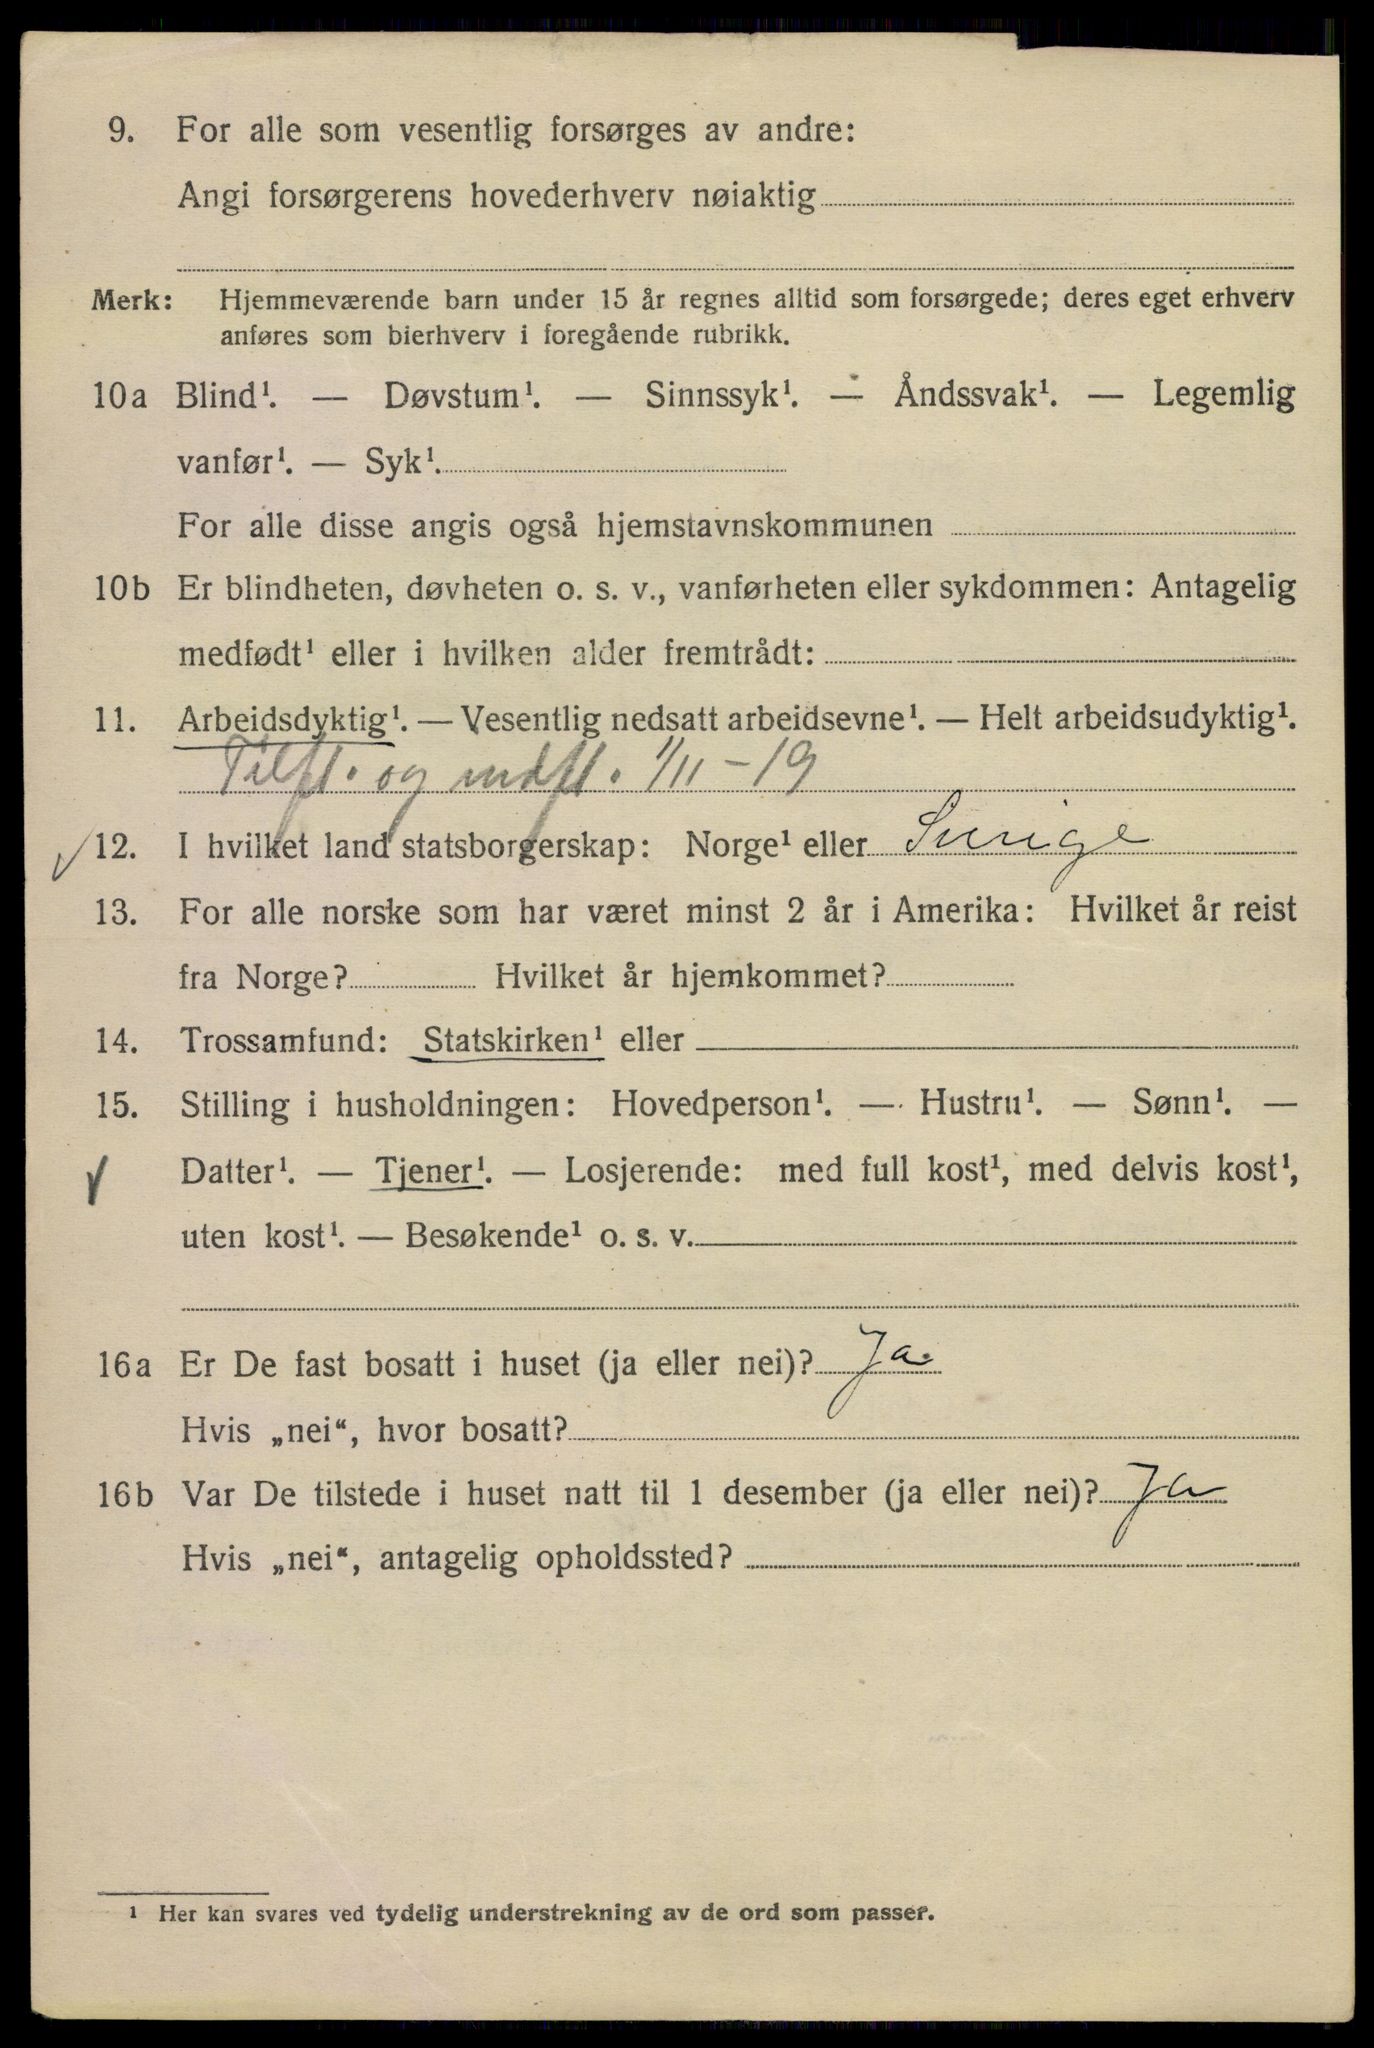 9. For alle som vesentlig forsørges av andre:
Angi forsørgerens hovederhverv nøiaktig
Merk: Hjemmeværende barn under 15 år regnes alltid som forsørgede; deres eget erhverv
anføres som bierhverv i foregående rubrikk.
10a Blind¹. — Døvstum¹. — Sinnssyk¹. — Åndssvak¹. — Legemlig
vanfør¹. — Syk¹.
For alle disse angis også hjemstavnskommunen
10b Er blindheten, døvheten o. s. v., vanførheten eller sykdommen: Antagelig
medfødt¹ eller i hvilken alder fremtrådt:
11. Arbeidsdyktig¹. — Vesentlig nedsatt arbeidsevne¹. — Helt arbeidsudyktig¹.
Tilfl. og indfl. 1/11-19
12. I hvilket land statsborgerskap: Norge¹ eller Sverige
13. For alle norske som har været minst 2 år i Amerika: Hvilket år reist
fra Norge? Hvilket år hjemkommet?
14. Trossamfund: Statskirken¹ eller
15. Stilling i husholdningen: Hovedperson¹. — Hustru¹. — Sønn¹. —
Datter¹. — Tjener¹. — Losjerende: med full kost¹, med delvis kost¹,
uten kost¹. — Besøkende¹ o. s. v.
16a Er De fast bosatt i huset (ja eller nei)? Ja.
Hvis „nei“, hvor bosatt?
16b Var De tilstede i huset natt til 1 desember (ja eller nei)? Ja
Hvis „nei“, antagelig opholdssted?
¹ Her kan svares ved tydelig understrekning av de ord som passer.